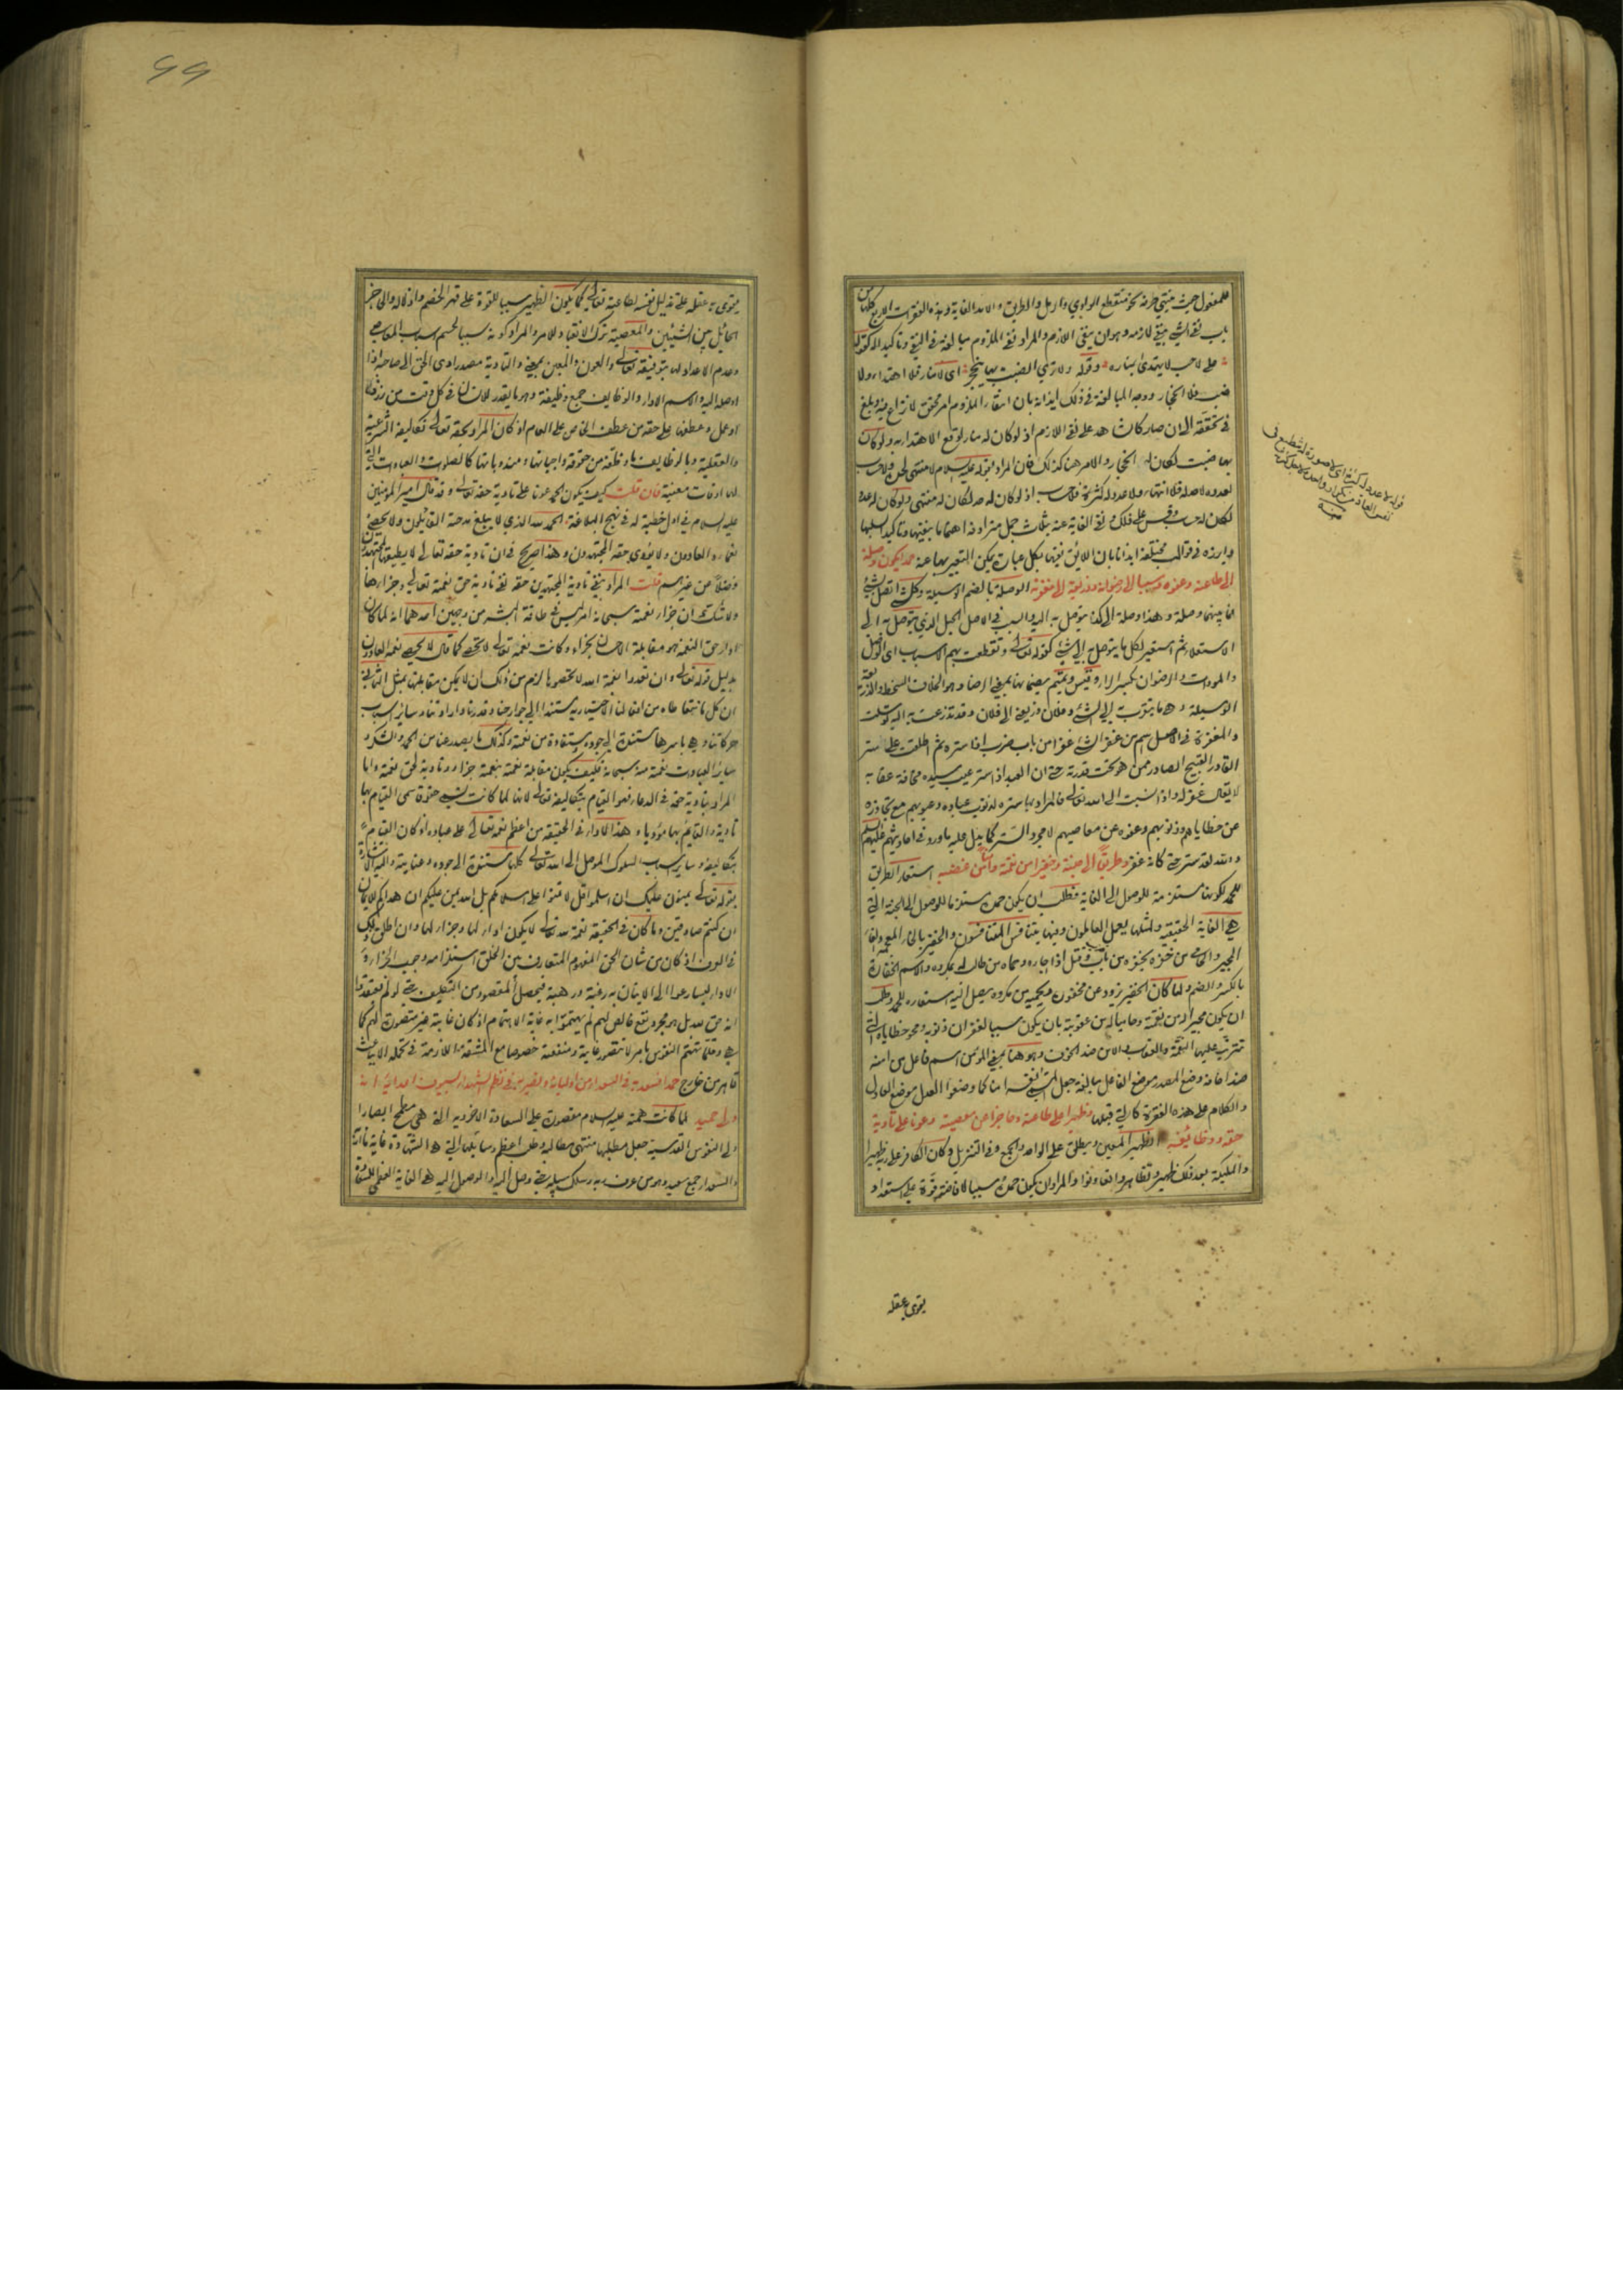 للمفعول حيث ينتهي طرفه نحو منقطع الوادي والرمل والطريق والامد الغاية وهذه الفقرات الاربع كلها من
باب نفي الشي بنفي لازمه وهو ان ينفي اللازم والمراد نفي الملزوم مبالغة في النفي وتاكيدا له كقوله
على لاحب لا يهتدى بمناره وقوله ولا ترى الضب بها ينجحر اي لا منار فلا اهتداء ولا
ضب فلا انجحار ووجه المبالغة في ذلك ايذانه بان انتفاء الملزوم امر محقق لا نزاع فيه وبلغ
في تحققه الى ان صار كالشاهد على نفي اللازم اذ لو كان له منار لوقع الاهتداء به ولو كان
بها ضب لكان له انجحار والامر هنا كذلك فان المراد بقوله عليه السلام لا منتهى لحده ولا حساب
لعدده لا حد له فلا انتهاء ولا عدد له فلا حساب اذ لو كان له حد لكان له منتهى ولو كان له عدد
لكان له حساب وقس على ذلك نفي الغاية عنه بثلاث جمل مترادفة اهتماما بنفيها وتاكيدا لسلبها
وابرزه في قوالب مختلفة ايذانا بان اللائق نفيها بكل عبارة يمكن التعبير بها عنه حمدا يكون وصلة
الى طاعته وعفوه وسببا الى رضوانه وذريعة الى مغفرته الوصلة بالضم الوسيلة وكل ما اتصل بشي
فما بينهما وصلة وهذا وصلة الى كذا يتوصل به اليه والسبب في الاصل الحبل الذي يتوصل به الى
الاستعلاء ثم استعير لكل ما يتوصل به الى شي كقوله تعالى وتقطعت بهم الاسباب اي الوصل
والمودات والرضوان بكسر الراء وقيس وتميم بضمها بمعنى الرضا وهو خلاف السخط والذريعة
الوسيلة وهي ما يتقرب به الى الشي وفلان ذريعتي الى فلان وقد تذرعت به اليه توسلت
والمغفرة في الاصل اسم من غفر الشي غفرا من باب ضرب اذا ستره ثم اطلقت على ستر
القادر القبيح الصادر ممن هو تحت قدرته حتى ان العبد اذا ستر عيب سيده مخافة عقابه
لا يقال غفر له واذا نسبت الى الله تعالى فالمراد بها ستره لذنوب عباده وعيوبهم مع تجاوزه
عن خطاياهم وذنوبهم وعفوه عن معاصيهم لا مجرد الستر كما يدل عليه ما ورد في ادعيتهم عليهم السلم
والله لقد ستر حتى كانه غفر وطريقا الى جنته وخفيرا من نقمته وامنا من غضبه استعار الطريق
للحمد لكونها مستلزمة للوصول الى الغاية فطلب ان يكون حمده مستلزما للوصول الى الجنة التي
هي الغاية الحقيقية ولمثلها يعمل العاملون وفيها يتنافس المتنافسون والخفير بالخاء المعجمة والفاء
المجير والحامي من خفره يخفره من باب قتل اذا اجاره وحماه من طالب مكروه والاسم الخفارة
بالكسر والضم ولما كان الخفير يذود عن مخفوره ويحميه من مكروه يصل اليه استعاره للحمد وطلب
ان يكون مجيرا له من نقمته وحاميا له من عقوبته بان يكون سببا لغفران ذنوبه ومحو خطاياه التي
تترتب عليها النقمة والعقاب والامن ضد الخوف وهو هنا بمعنى المؤمن اسم فاعل من امنه
ضد اخافه وضع المصدر موضع الفاعل مبالغة جعل الشي نفسه امنا كما وضعوا العدل موضع العادل
والكلام على هذه الفقرة كالتي قبلها وظهيرا على طاعته وحاجزا عن معصيته وعونا على تادية
حقه ووظائفه الظهير المعين ويطلق على الواحد والجمع وفي التنزيل وكان الكافر على ربه ظهيرا
والملئكة بعد ذلك ظهير وتظاهروا تعاونوا والمراد ان يكون حمده سببا لافاضة قوة على استعداد
يقوى به عقله
قوله لا عدد له
يقوى به عقله على تذليل نفسه لطاعته تعالى كما يكون الظهير سببا للقوة على قهر الخصم واذلاله والحاجز
الحائل بين الشيئين والمعصية ترك الانقياد للامر والمراد كونه سببا لحسم اسباب المعاصي
وعدم الاعداد لها بتوفيقه تعالى والعون والمعين بمعنى والتادية مصدر ادى الحق الى صاحبه اذا
اوصله اليه والاسم الاداء والوظايف جمع وظيفة وهو ما يقدر للانسان في كل وقت من رزق
او عمل وعطفها على حقه من عطف الخاص على العام اذ كان المراد بحقه تعالى تكاليفه الشرعية
والعقلية وبالوظايف ما وظفه من حقوقه واجباتها ومندوباتها كالصلوات والعبادات التي
لها اوقات معينة فان قلت كيف يكون الحمد عونا على تادية حقه تعالى وقد قال امير المؤمنين
عليه السلام في اول خطبة له في نهج البلاغة الحمد لله الذي لا يبلغ مدحته القائلون ولا يحصي
نعماءه العادون ولا يؤدي حقه المجتهدون وهذا صريح في ان تادية حقه تعالى لا يطيقها المجتهدون
فضلا عن غيرهم قلت المراد بنفي تادية المجتهدين حقه نفي تادية حق نعمته تعالى وجزائها
ولا شك ان جزاء نعمته سبحانه امر ليس في طاقة البشر من وجهين احدهما انه لما كان
اداء حق النعمة هو مقابلة الاحسان بجزاء وكانت نعمته تعالى لا تحصى كما قال لا يحصي نعمه العادون
بدليل قوله تعالى وان تعدوا نعمة الله لا تحصوها لزم من ذلك ان لا يمكن مقابلتها بمثل الثاني
ان كل ما نتعاطاه من افعالنا الاختيارية مستند الى جوارحنا وقدرنا واراداتنا وسائر اسباب
حركاتنا وهي باسرها مستندة الى جوده ومستفادة من نعمته وكذلك ما يصدر عنا من الحمد والشكر و
سائر العبادات نعمة منه سبحانه فكيف يكون مقابلة نعمته بنعمته جزاء وتادية لحق نعمته واما
المراد بتادية حقه في الدعاء فهو القيام بتكاليفه تعالى لانها لما كانت تسمى حقوقه سمي القيام بها
تادية والقائم بها مؤديا وهذا الاداء في الحقيقة من اعظم نعمه تعالى على عباده اذ كان القيام
بتكاليفه وسائر اسباب السلوك الموصل الى الله تعالى كلها مستندة الى جوده وعنايته واليه الاشارة
بقوله تعالى يمنون عليك ان اسلموا قل لا تمنوا علي اسلامكم بل الله يمن عليكم ان هداكم للايمان
ان كنتم صادقين وما كان في الحقيقة نعمة لله تعالى لا يكون اداء لها وجزاء لها وان اطلق ذلك
في العرف اذ كان من شان الحق المفهوم المتعارف بين الخلق استلزامه وجوب الجزاء و
الاداء ليسارعوا الى الاتيان به رغبة ورهبة فيحصل المقصود من التكليف حتى لو لم يعتقدوا
انه حق لله بل هو مجرد نفع خالص لهم لم يهتموا به غاية الاهتمام اذ كان غايته غير متصورة لهم كما
هي وقلما تهتم النفوس بامر لا تتصور غايته ومنفعته خصوصا مع المشقة اللازمة في تحمله الا بباعث
قاهر من خارج حمدا نسعد به في السعداء من اوليائه ونصير به في نظم الشهداء بسيوف اعدائه انه
ولي حميد لما كانت همته عليه السلام مقصورة على السعادة الاخروية التي هي مطمح ابصار ا
ولي النفوس القدسية جعل مطلبها منتهى مطالبه وطلب اعظم وسائلها التي هي الشهادة غاية ماربه
والسعداء جمع سعيد وهو من عرف ربه وسلك سبيله حتى وصل اليه والوصول اليه هو الغاية العظمى للسعادة